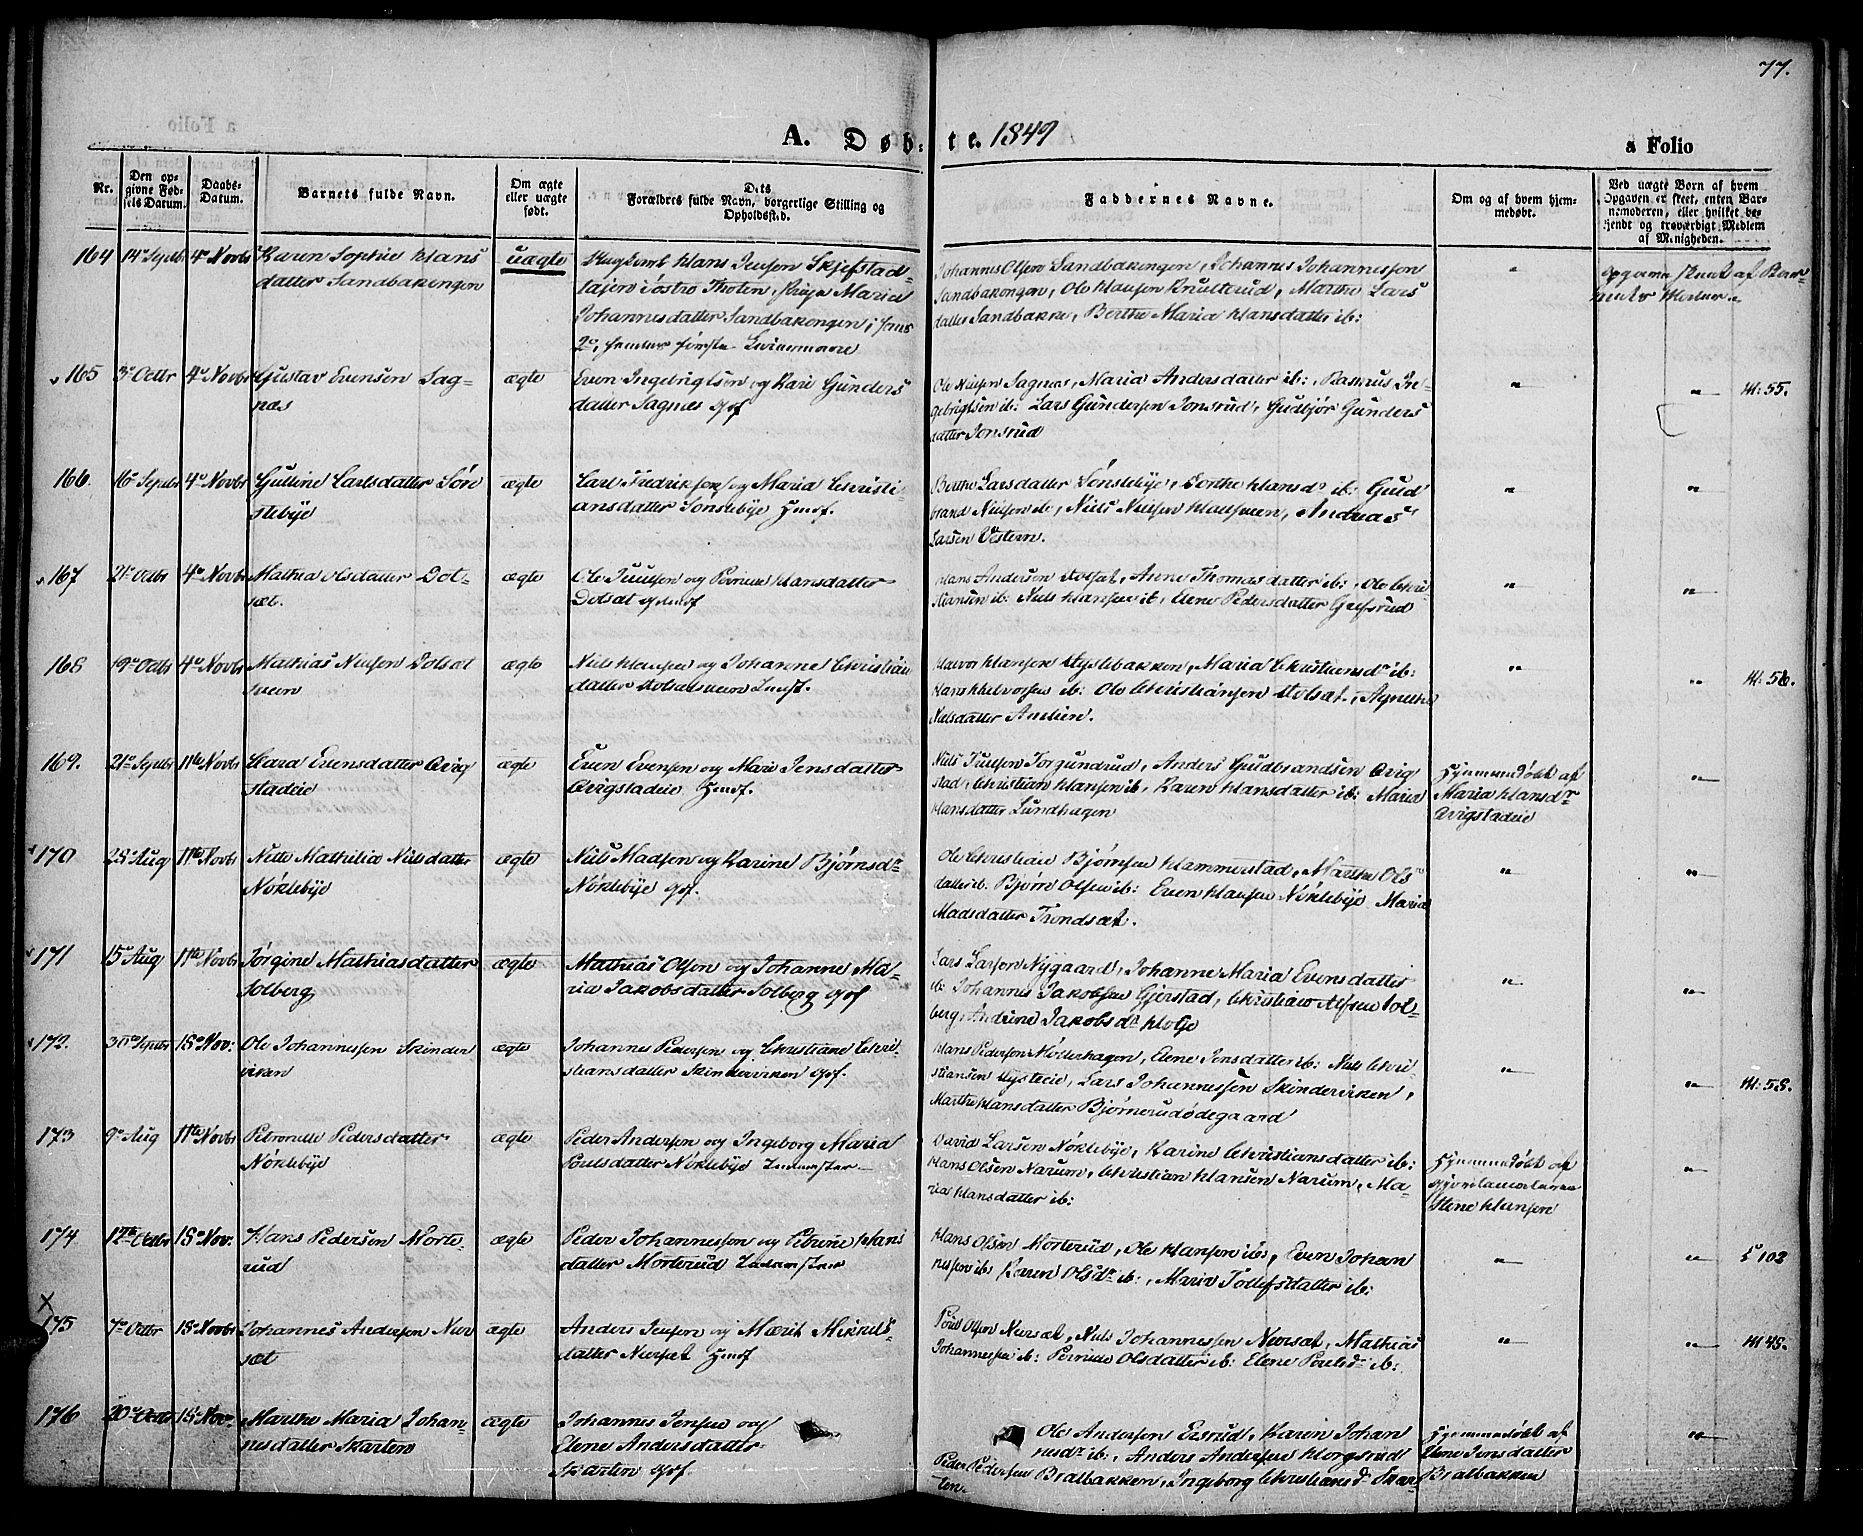 77.
A. Døb:te. 1849
a Folio
Nr.
Den op-
givne Fød-
sels Datum.
Daabs-
Datum.
Barnets fulde Navn.
Om ægte
eller uægte
født.
Dets
Forældres fulde Navn, borgerlige Stilling og
Opholdssted.
Faddernes Navne.
Om og af hvem hjem-
medøbt.
Ved uægte Børn af hvem
Opgaven er skeet, enten Bar-
nemoderen, eller hvilket be-
kjendt og troværdigt Medlem
af Menigheden.
164 14de Septbr 4de Novbr Karen Sophie Hans
datter Sandbakengen
uægte
Ungkarl Hans Jensen Skjefstad-
i østre Thoten, Pige Maria
Johannesdatter Sandbakengen;
Johannes Olsen Sandbakengen, Johannes Johannessen
Sandbakengen, Ole Hansen Knutterud, Marthe Lars
datter Sandbakke, Berthe Maria Hansdatter ib:
af Bar-
165 3de Octbr 4de Novbr Gustav Evensen Sag-
næs
ægte
Even Ingebrigtsen og Kari Gunders
datter Sagnæs Gdf
Ole Nielsen Sagnæs, Maria Andersdatter ib:, Rasmus In-
gebrigtsen ib: Lars Gundersen Jonsrud, Gudbjør Gunders
datter Jonsrud
M: 55.
166. 16de Septbr 4de Novbr Gulline Carlsdatter Søn
stebye
ægte
Carl Fredriksen og Maria Christi-
ansdatter Sønstebye Hmdf.
Berthe Larsdatter Sønstebye, Dorthe Hansdr ib: Gud
brand Nielsen ib, Niels Nielsen Andreas
Larsen Østern.
167 21de Octbr 4de Novbr Mathea Olsdatter Dot-
sæt.
ægte
Ole Juulsen og Pernille Hansdatter
Dotsæt
Hans Andersen Dotsæt, Anne Thomasdatter ib:, Ole Chri-
stiansen ib: Niels Hansen ib, Elene Pedersdatter
168 19de Octbr 4de Novbr Mathias Nielsen Dotsæt
ægte
Niels Hansen og Johanne Christian
datter
Halvor Hansen Maria Christiansdr ib:
Hans Halvorsen ib: Ole Christiansen Dotsæt, Agnethe
Nielsdatter
M: 56.
169. 21de Septbr 11te Novbr Evensdatter Qvig
stadeie
ægte
Even Evensen og Mari Jensdatter
Qvigstadeie Hmdf.
Niels Juulsen Torgundrud, Anders Gudbrandsen Qvig
stad, Christian Hansen ib, Karen Hansdatter ib: Maria
Hansdatter Lundhagen
Hjemmedøbt af
Maria Hansdr
Qvigstadeie
170 28de Aug 11te Novbr Nette Mathilia Nilsdatter
Nøklebye
ægte
Niels Madsen og Karine Bjørnsdr
Nøklebye Gdf.
Ole Christian Bjørnsen Hammerstad, Marthe Ols
datter ib. Bjørn Olsen ib: Even Hansen Nøklebye Maria
Madsdatter Trondsæt.
171 15de Aug 11te Novbr Jørgine Mathiasdatter
Solberg
ægte
Mathias Olsen og Johanne Ma-
ria Jakobsdatter Solberg Gdf
Lars Larsen Nygaard, Johanne Maria Evensdatter
ib: Johannes Jakobsen Gjerstad, Christian Alfsen Sol-
berg, Andrine Jakobsdr
172. 30de Septbr 18de Nov: Ole Johannesen Skinder
viken
ægte
Johannes Pedersen og Christiane Chri-
stiansdatter Skinderviken Gdf.
Hans Pedersen Møllerhagen, Elene Jensdatter ib: Niels Chri-
stiansen Lars Johannessen Skinderviken,
Marthe Hansdatter Bjørnerudødegaard
M: 58.
173 9de Aug 11te Novbr Petronelle Pedersdatter
Nøklebye
ægte
Peder Andersen og Ingeborg Maria
Poulsdatter Nøklebye Inderster
David Larsen Nøklebye, Karine Christiansdatter ib:
Hans Olsen Narum, Christian Hansen Narum, Ma-
ria Hansdatter ib:
Hjemmedøbt af
Gjordemoderen
Stene Hansen
174 12te Octbr 18de Nov: Hans Pedersen Morte-
rud
ægte
Peder Johannessen og Petrine Hans
datter Morterud Inderster
Hans Olsen Morterud, Ole Hansen ib:, Even Johan
nessen ib: Karen Olsdr ib:, Maria Tollefsdatter ib:
S 102
X
175 7de Octbr 18de Novbr Johannes Andersen Nær
sæt
ægte
Anders Jensen og Marit Mikkels-
datter Nærsæt Hmdf
Poul Olsen Nærsæt, Niels Johannessen Nærsæt, Mathias
Johannessen ib: Pernille Olsdatter ib: Elene Poulsdr ib:
M 45.
176 20de Octbr 18de Nov. Marthe Maria Johan-
nesdatter Skarten
ægte
Johannes Jensen og
Elene Andersdatter
Skarten Gdf.
Ole Andersen Evsrud, Karen Johan
nesdr ib:, Anders Andersen
Peder Pedersen Bralbakken, Ingeborg Christiansdr Skar
ten.
Hjemmedøbt af
Jensdatter
Bralbakken